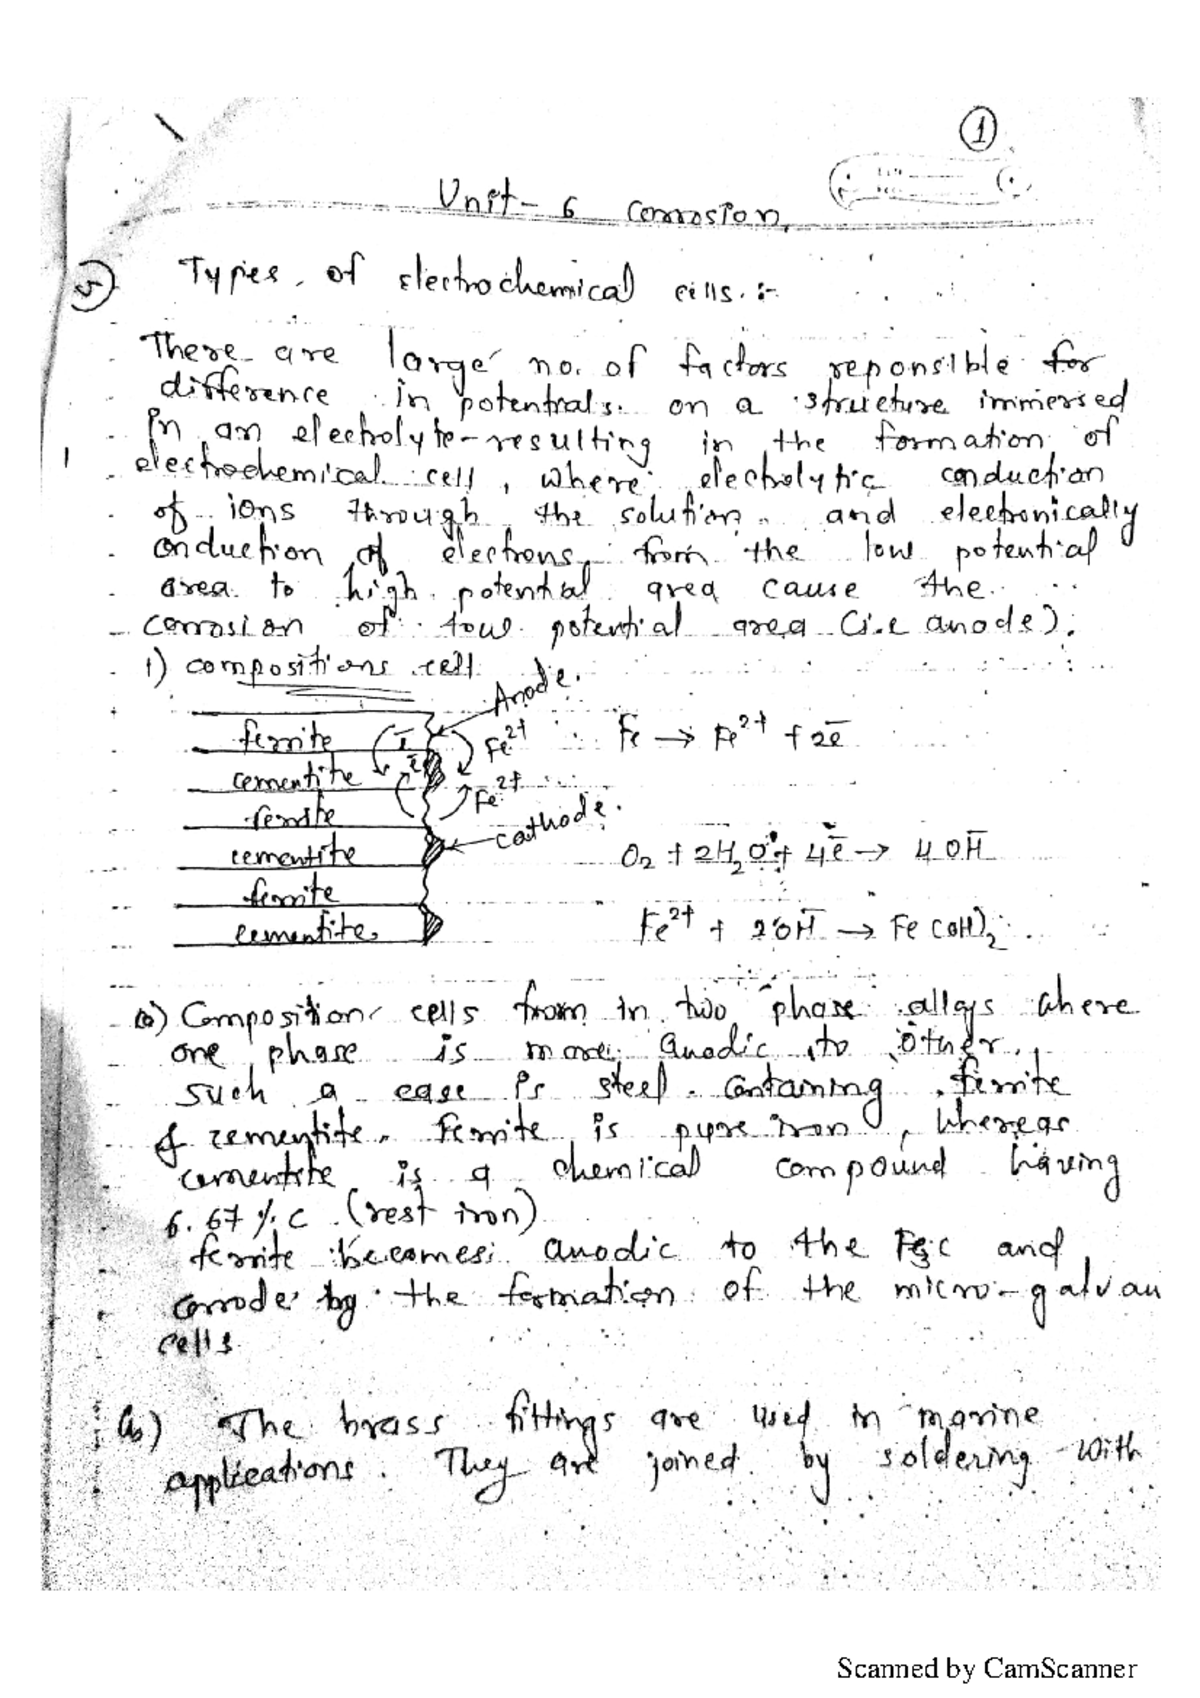 1
Unit - 6 Corrosion
5) Types of electrochemical cells :-
There are large no. of factors reponsible for
difference in potentials on a structure immersed
in an electrolyte - resulting in the formation of
electrochemical cell, where electrolytic conduction
of ions through the solution and electronically
conduction of electrons from the low potential
area to high potential area cause the
corrosion of low potential area (i.e anode).
1) compositions cell
Anode.
ferrite e⁻ Fe²⁺ Fe → Fe²⁺ + 2e⁻
cementite e⁻ Fe²⁺
ferrite cathode.
cementite O₂ + 2H₂O + 4e⁻ → 4OH⁻
ferrite
cementite Fe²⁺ + 2OH⁻ → Fe(OH)₂
(a) Composition cells from in two phase alloys where
one phase is more anodic to other,
such a case is steel containing ferrite
& cementite. Ferrite is pure iron, whereas
cementite is a chemical compound having
6.67 % C (rest iron)
ferrite becomes anodic to the Fe₃C and
corrode by the formation of the micro-galvan
cells
(b) The brass fittings are used in marine
applications. They are joined by soldering with
Scanned by CamScanner